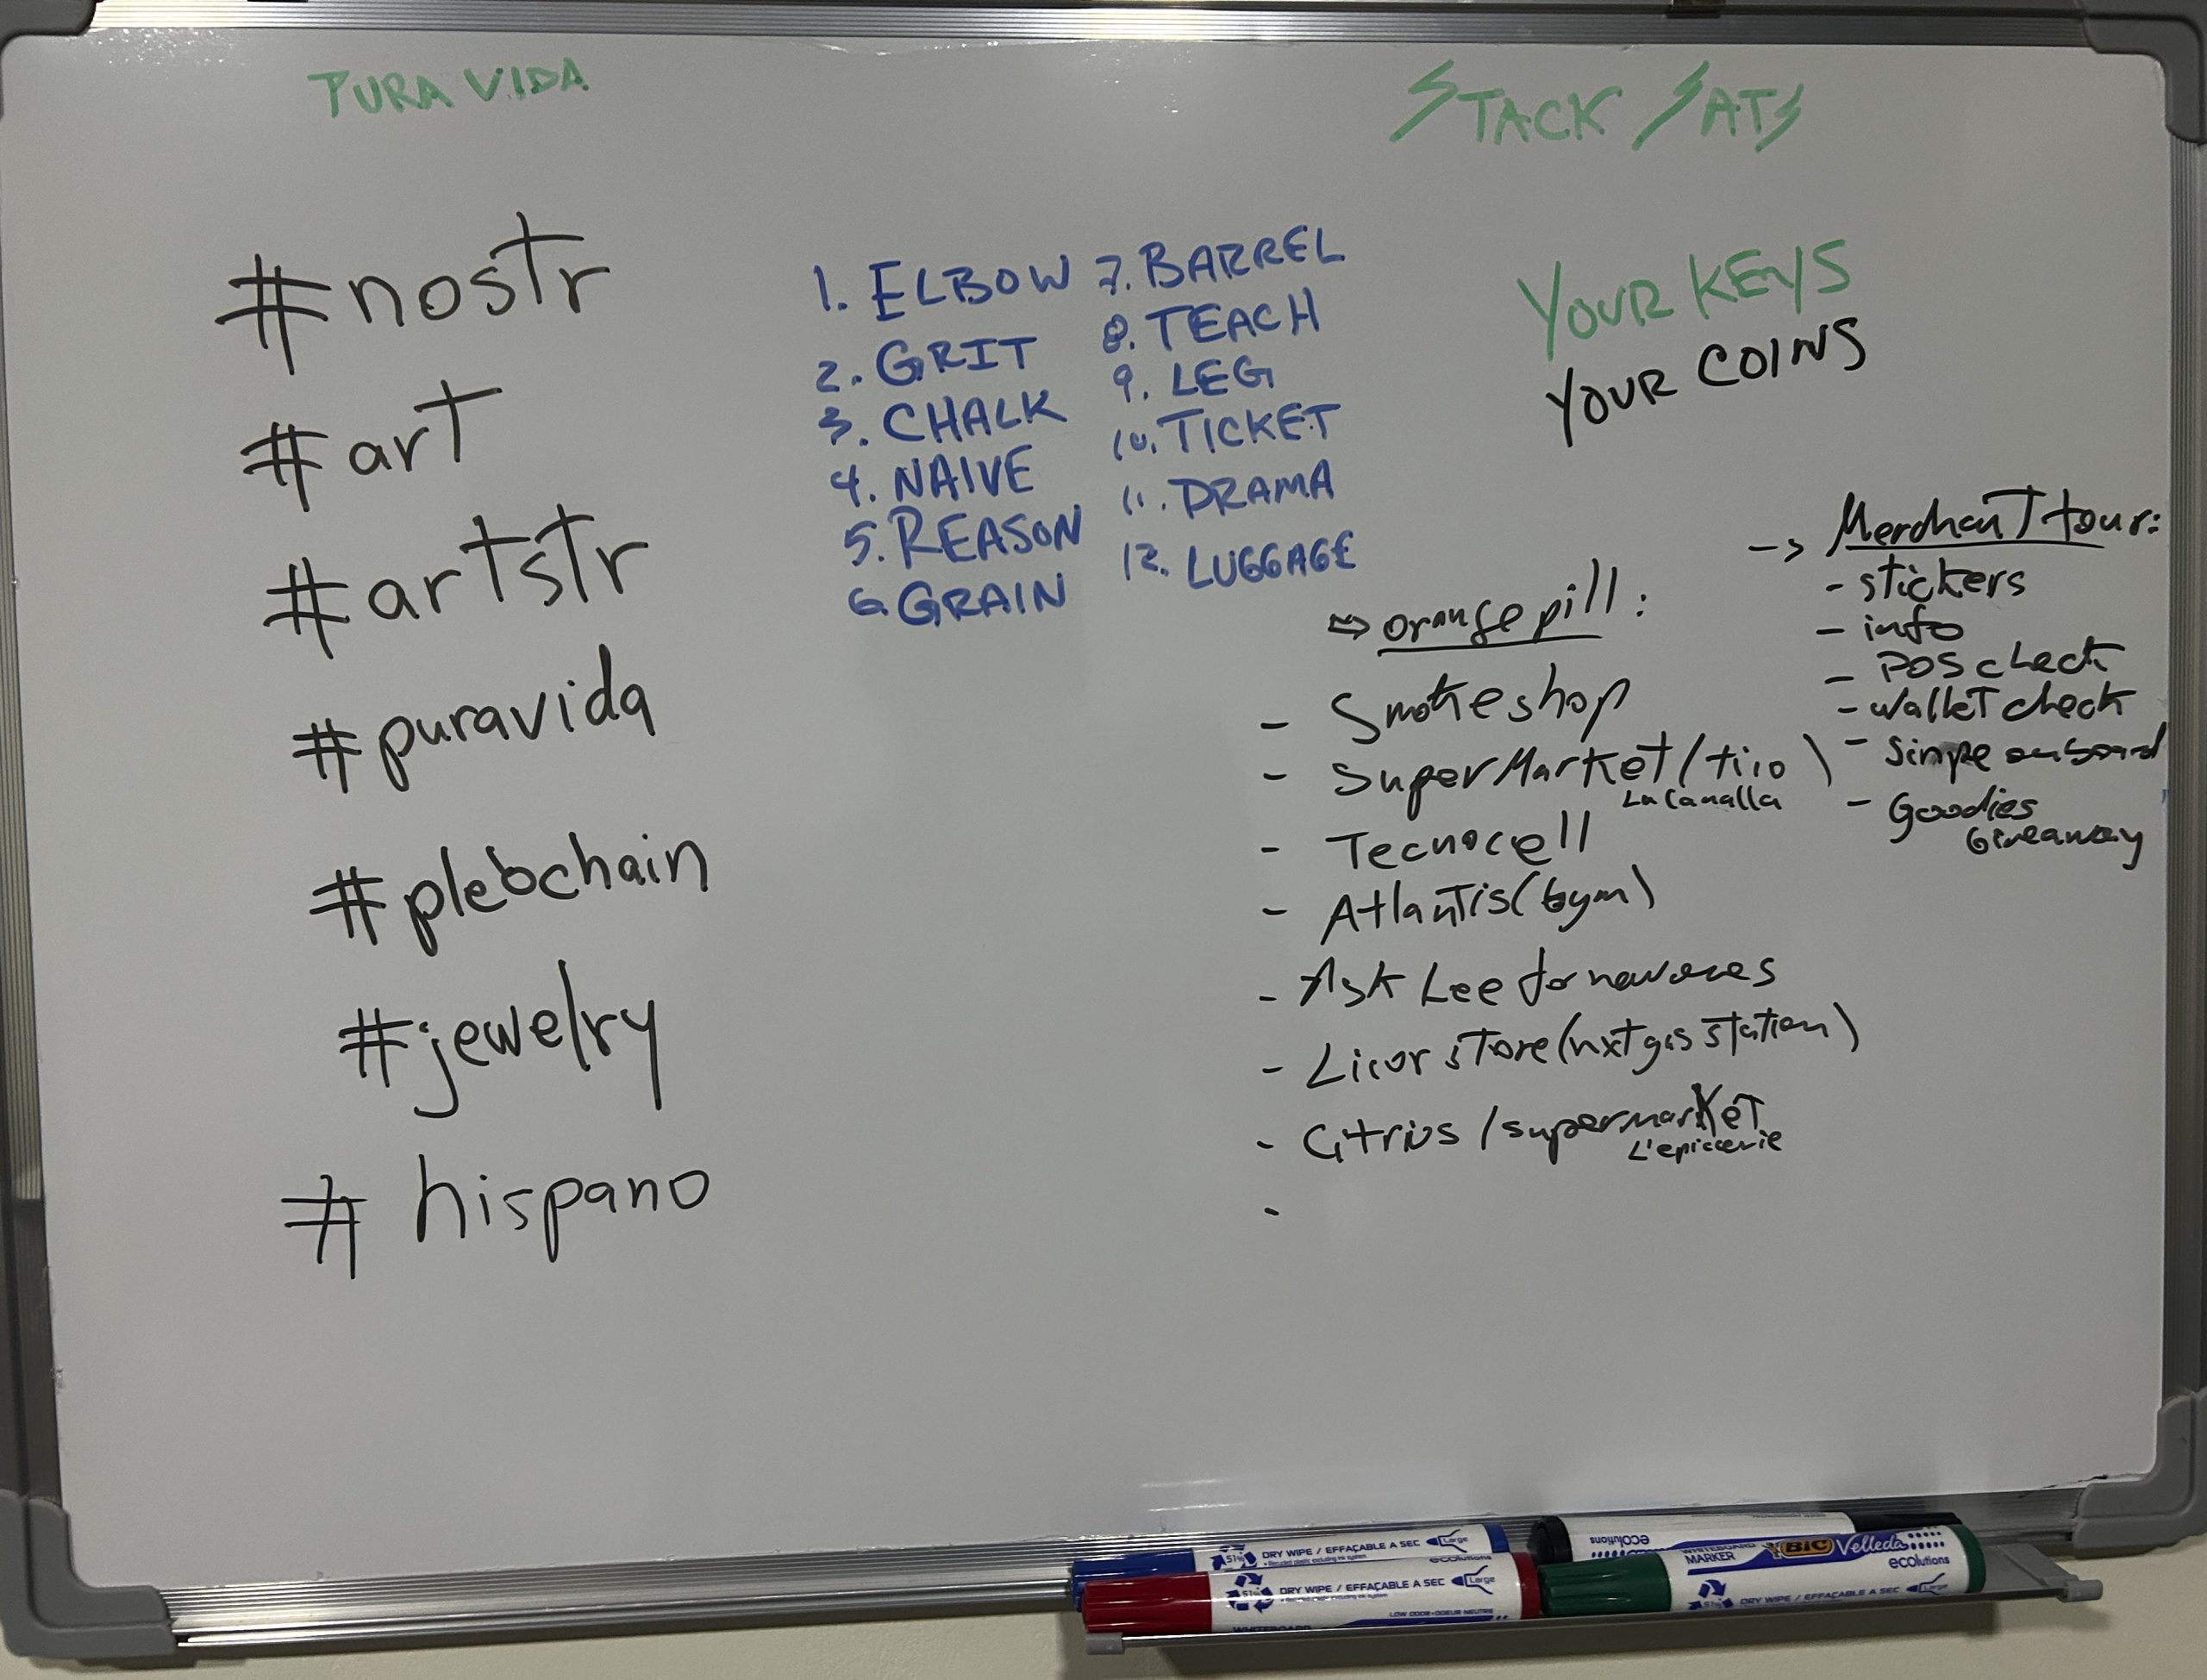 PURA VIDA
STACK SATS
#nostr
#art
#artstr
#puravida
#plebchain
#jewelry
# hispano
1. ELBOW
2. GRIT
3. CHALK
4. NAIVE
5. REASON
6. GRAIN
7. BARREL
8. TEACH
9. LEG
10. TICKET
11. DRAMA
12. LUGGAGE
YOUR KEYS
YOUR COINS
-> Merchant tour:
- stickers
- info
- POS check
- wallet check
- Simpe onboard
- Goodies
Giveaway
=> orange pill:
- Smokeshop
- SuperMarket/tico)
La Canalla
- Tecnocell
- Atlantis (Gym)
- Ask Lee for new ones
- Licor store (nxt gas station)
- Citrius / supermarket
L'epiccerie
-
DRY WIPE / EFFAÇABLE A SEC
Large
ecolutions
DRY WIPE / EFFAÇABLE A SEC
Large
LOW ODOR-ODEUR NEUTRE
WHITEBOARD
ecolutions
WHITEBOARD
MARKER
BIC Velleda
ecolutions
DRY WIPE / EFFAÇABLE A SEC
Large